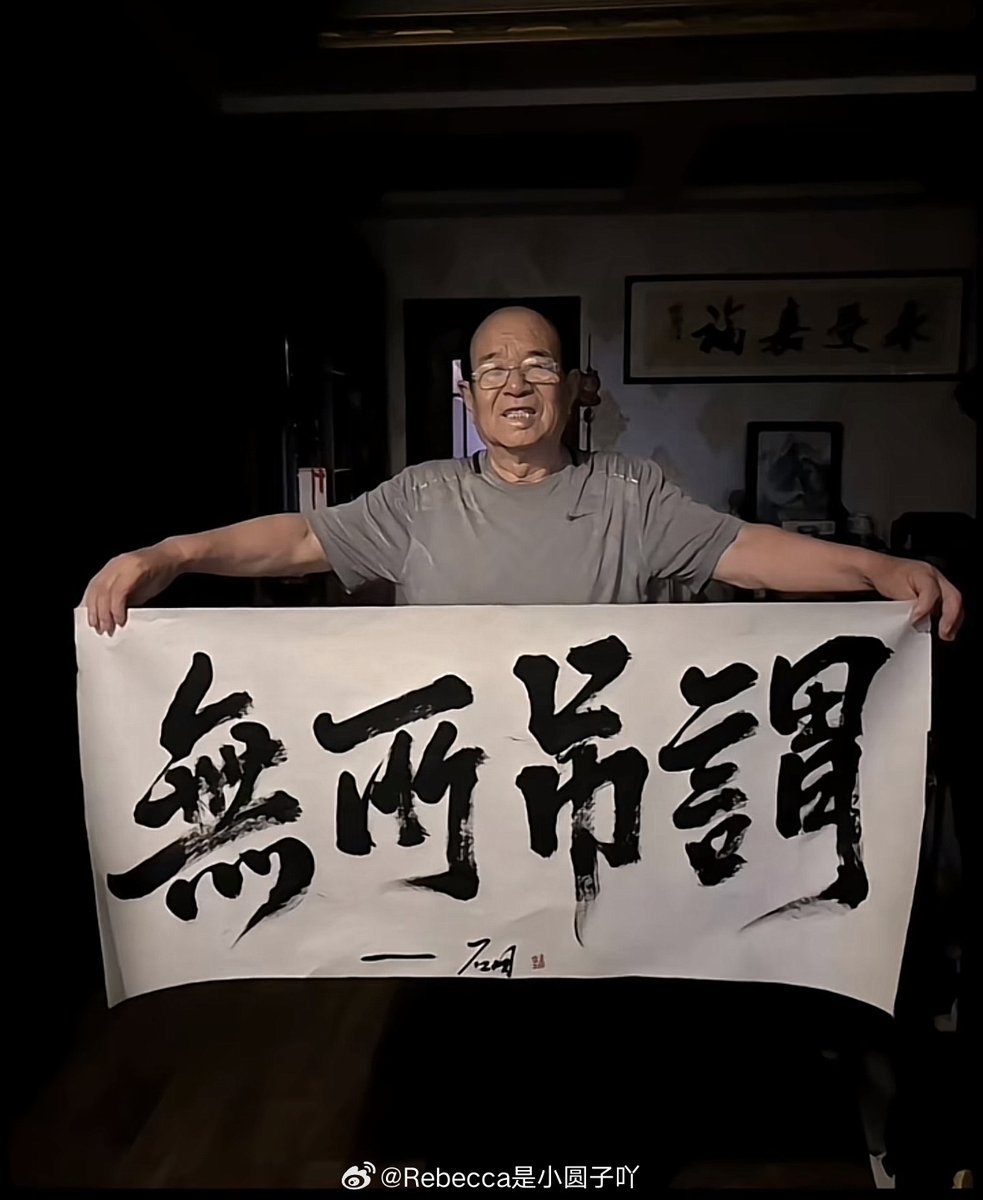 永受嘉福
無所吊謂
@Rebecca是小圆子吖